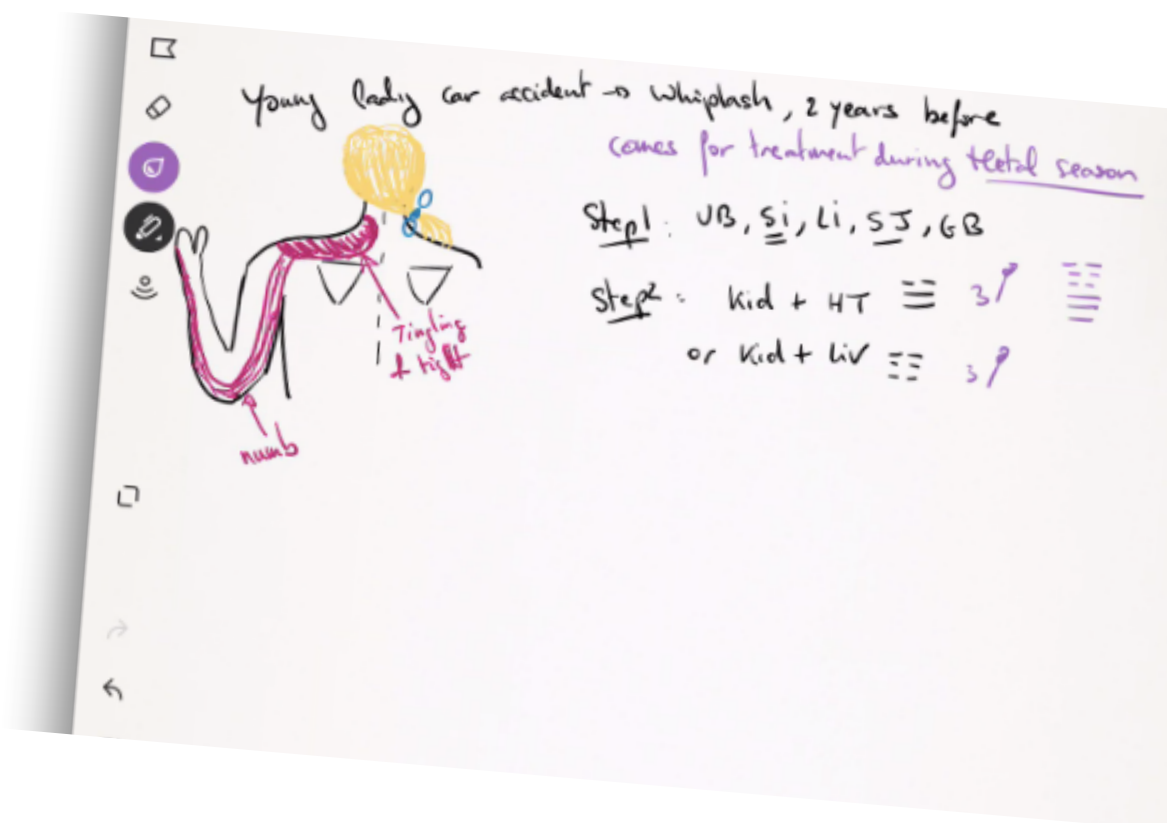 Young lady car accident → whiplash, 2 years before
comes for treatment during Metal season
Step1: UB, Si, Li, SJ, GB
Step2: Kid + HT ☱ 3
or Kid + Liv ☷ 3
Tingling
& tight
numb